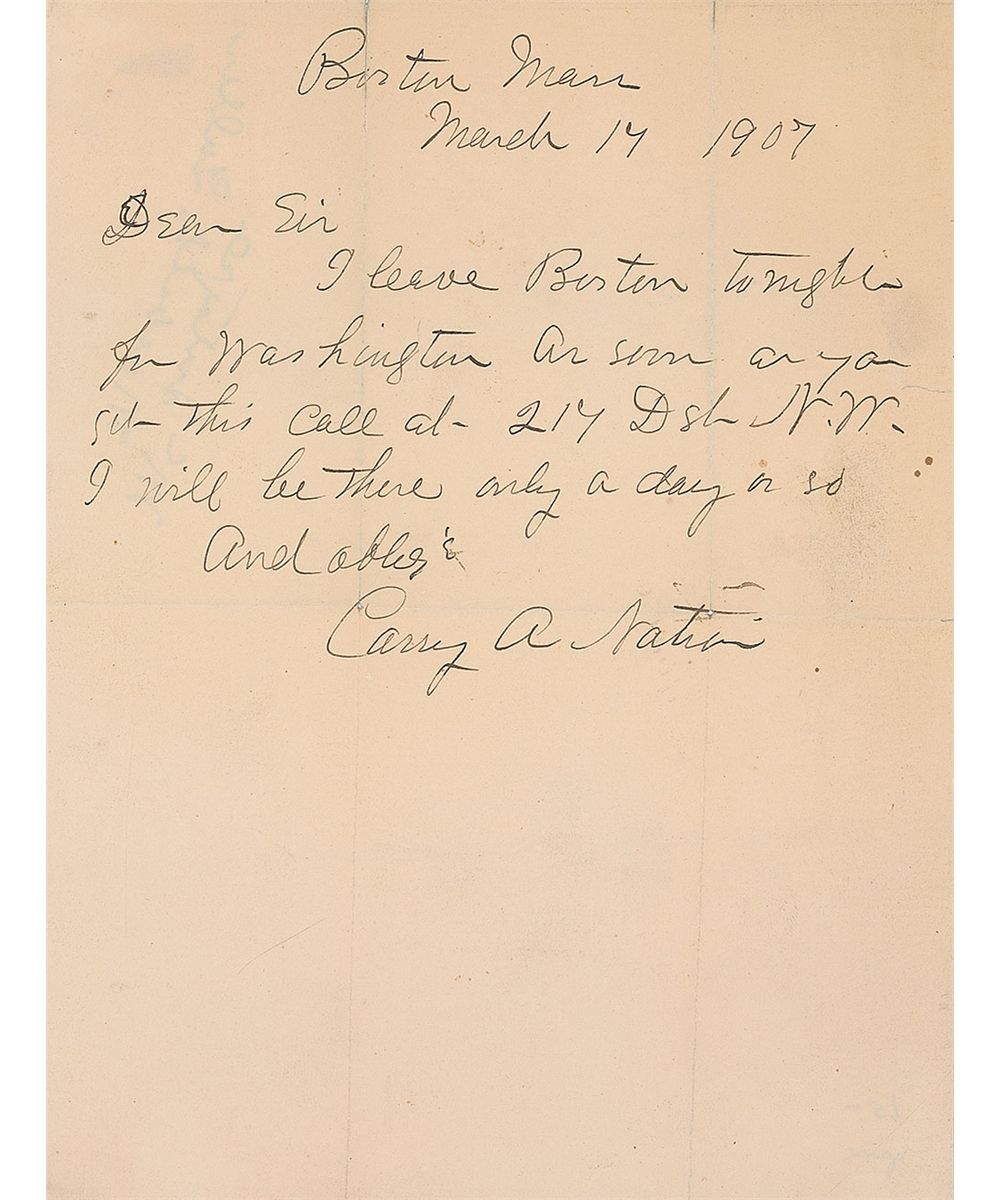 Boston Mass
March 14 1907
Dear Sir
I leave Boston tonight
for Washington As soon as you
get this call at 214 D st N.W.
I will be there only a day or so
And oblige
Carry A Nation